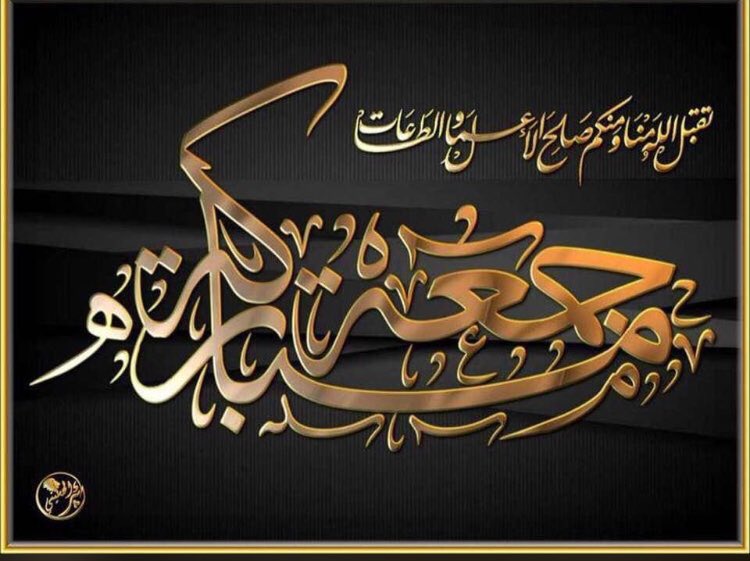 تقبل الله منا ومنكم صالح الاعمال والطاعات
جمعة مباركة